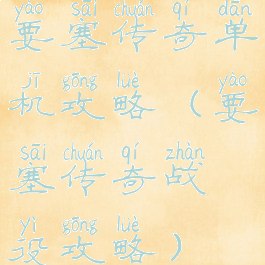 yào sāi chuán qí dān
要塞传奇单
jī gōng lüè yào
机攻略(要
sāi chuán qí zhàn
塞传奇战
yì gōng lüè
役攻略)